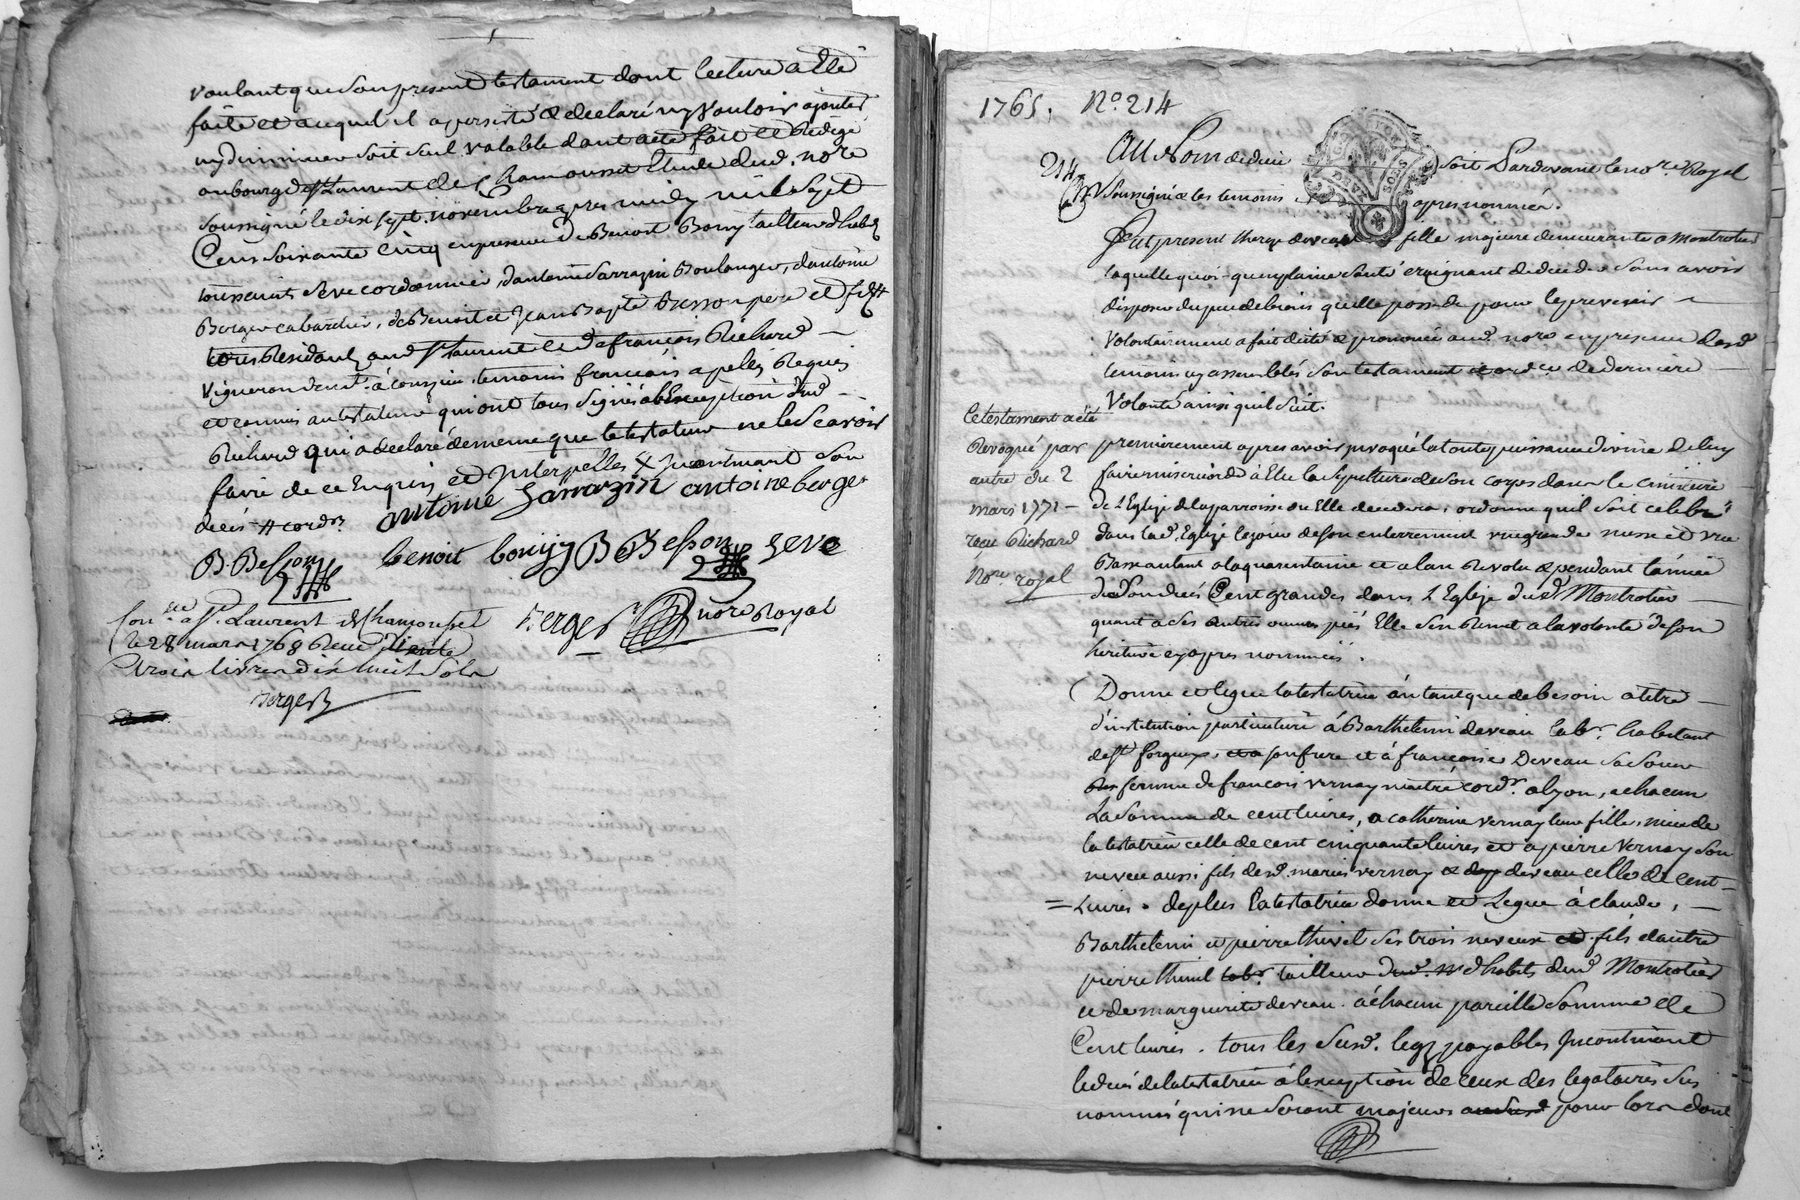 voulant que son present testament dont lecture a Eté
faite et auquel il a persisté & declaré n'y vouloir ajouter
ny diminuer soit seul valable dont acte fait et Redigé
au bourg de St Laurent de Chamousset Etude dud. nore
soussigné le dix sept novembre apres midy mil sept
Cent soixante Cinq en presence de Benoit Bouvy tailleur d'habits
toussaint Seve cordonnier, d'antoine Sarrazin Boulanger, d'antoine
Berger cabaretier, de Benoit et Jean Bapte Besson pere et fils #
tous Residants aud St Laurent et de françois Richard
Vigneron temoins françois apellés Requis
et connus au testateur qui ont tous signé a l'Exception dud
Richard qui a declaré de meme que le testateur ne le Scavoir
faire de ce Enquis et Interpellés & suivant son
deces # cordr
antoine Sarrazin antoine berger
B. Besson benoit bouvy B Besson Seve
Berger nore Royal
Con.lé a St. Laurent de Chamousset
le 28 mars 1768 Reçu
trois livres dix huit sols
Berger
1765. No. 214
214
Au Nom de dieu soit Pardevant le nore Royal
Soussigné & les temoins apres nommés.
fut present therese deveau fille majeure demeurante a Montrotier
laquelle quoi-qu'en plaine Santé craignant de deceder sans avoir
disposé du peu de biens qu'elle possede pour le prevenir
Volontairement a fait dicté & prononcé aud. nore en presence desd
temoins cy assemblés son testament et ordce de derniere
Volonté ainsi quil Suit.
premierement apres avoir invoqué la toute puissance divine de luy
faire misericorde a Elu la Sepulture de son corps dans le cimitiere
de l'Eglize de la parroisse ou Elle decedera, ordonne quil soit celebré
dans lad. Eglize le jour de son enterrement une grande messe et une
Basse autant a la quarantaine et a l'an Revolu & pendant l'année
de Son decés Cent grandes dans l'Eglize dud Montrotier
quant a Ses autres œuvres pies Elle S'en Remet a la volonté de Son
heritiere cy apres nommée.
Le testament a été
Revoqué par
autre du 2
mars 1771
reçu Richard
Nore royal
Donne et legue la testatrice en tant que de besoin a titre
d'institution particuliere á Barthelemi deveau labr. habitant
de St forgeux, son frere et á françoise Deveau sa Soeur
femme de françois vernay maitre cordr. a lyon, a chacun
La Somme de cent livres, a catherine vernay leur fille, niece de
la testatrice celle de cent cinquante livres et a pierre Vernay Son
neveu aussi fils desd. mariés vernay & deveau celle de cent
= Livres. de plus la testatrice donne et Legue à claude,
Barthelemi et pierre thivel ses trois neveux fils d'autre
pierre thivel tailleur d'habits dud Montrotier
et de marguerite deveau. a chacun pareille Somme de
Cent livres. tous les Susd. legs payables Incontinant
le deces de la testatrice á l'exception de ceux des legataires Sus
nommés qui ne Seront majeurs pour lors dont